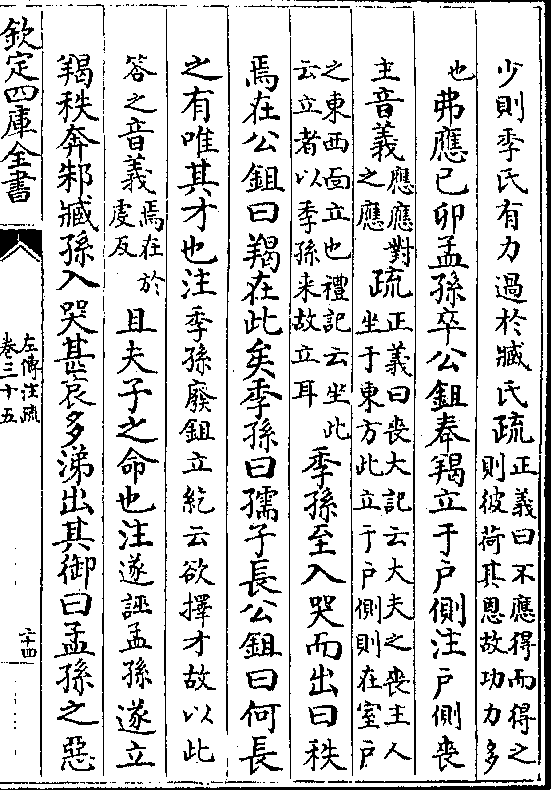 少則季氏有力過於臧氏疏正義曰不應得而得之則彼荷其恩故功力多
也弗應己卯孟孫卒公鉏奉羯立于戶側注戶側喪
主音義應應對之應疏正義曰喪大記云大夫之喪主人坐于東方此立于戶側則在室戶
之東西面立也禮記云坐此云立者以季孫来故立耳季孫至入哭而出曰秩
焉在公鉏曰羯在此矣季孫曰孺子長公鉏曰何長
之有唯其才也注季孫廢鉏立紇云欲擇才故以此
答之音義焉在於虔反且夫子之命也注遂誣孟孫遂立
羯秩奔邾臧孫入哭甚哀多涕出其御曰孟孫之惡
欽定四庫全書
左傳注疏
卷三十五
二十四